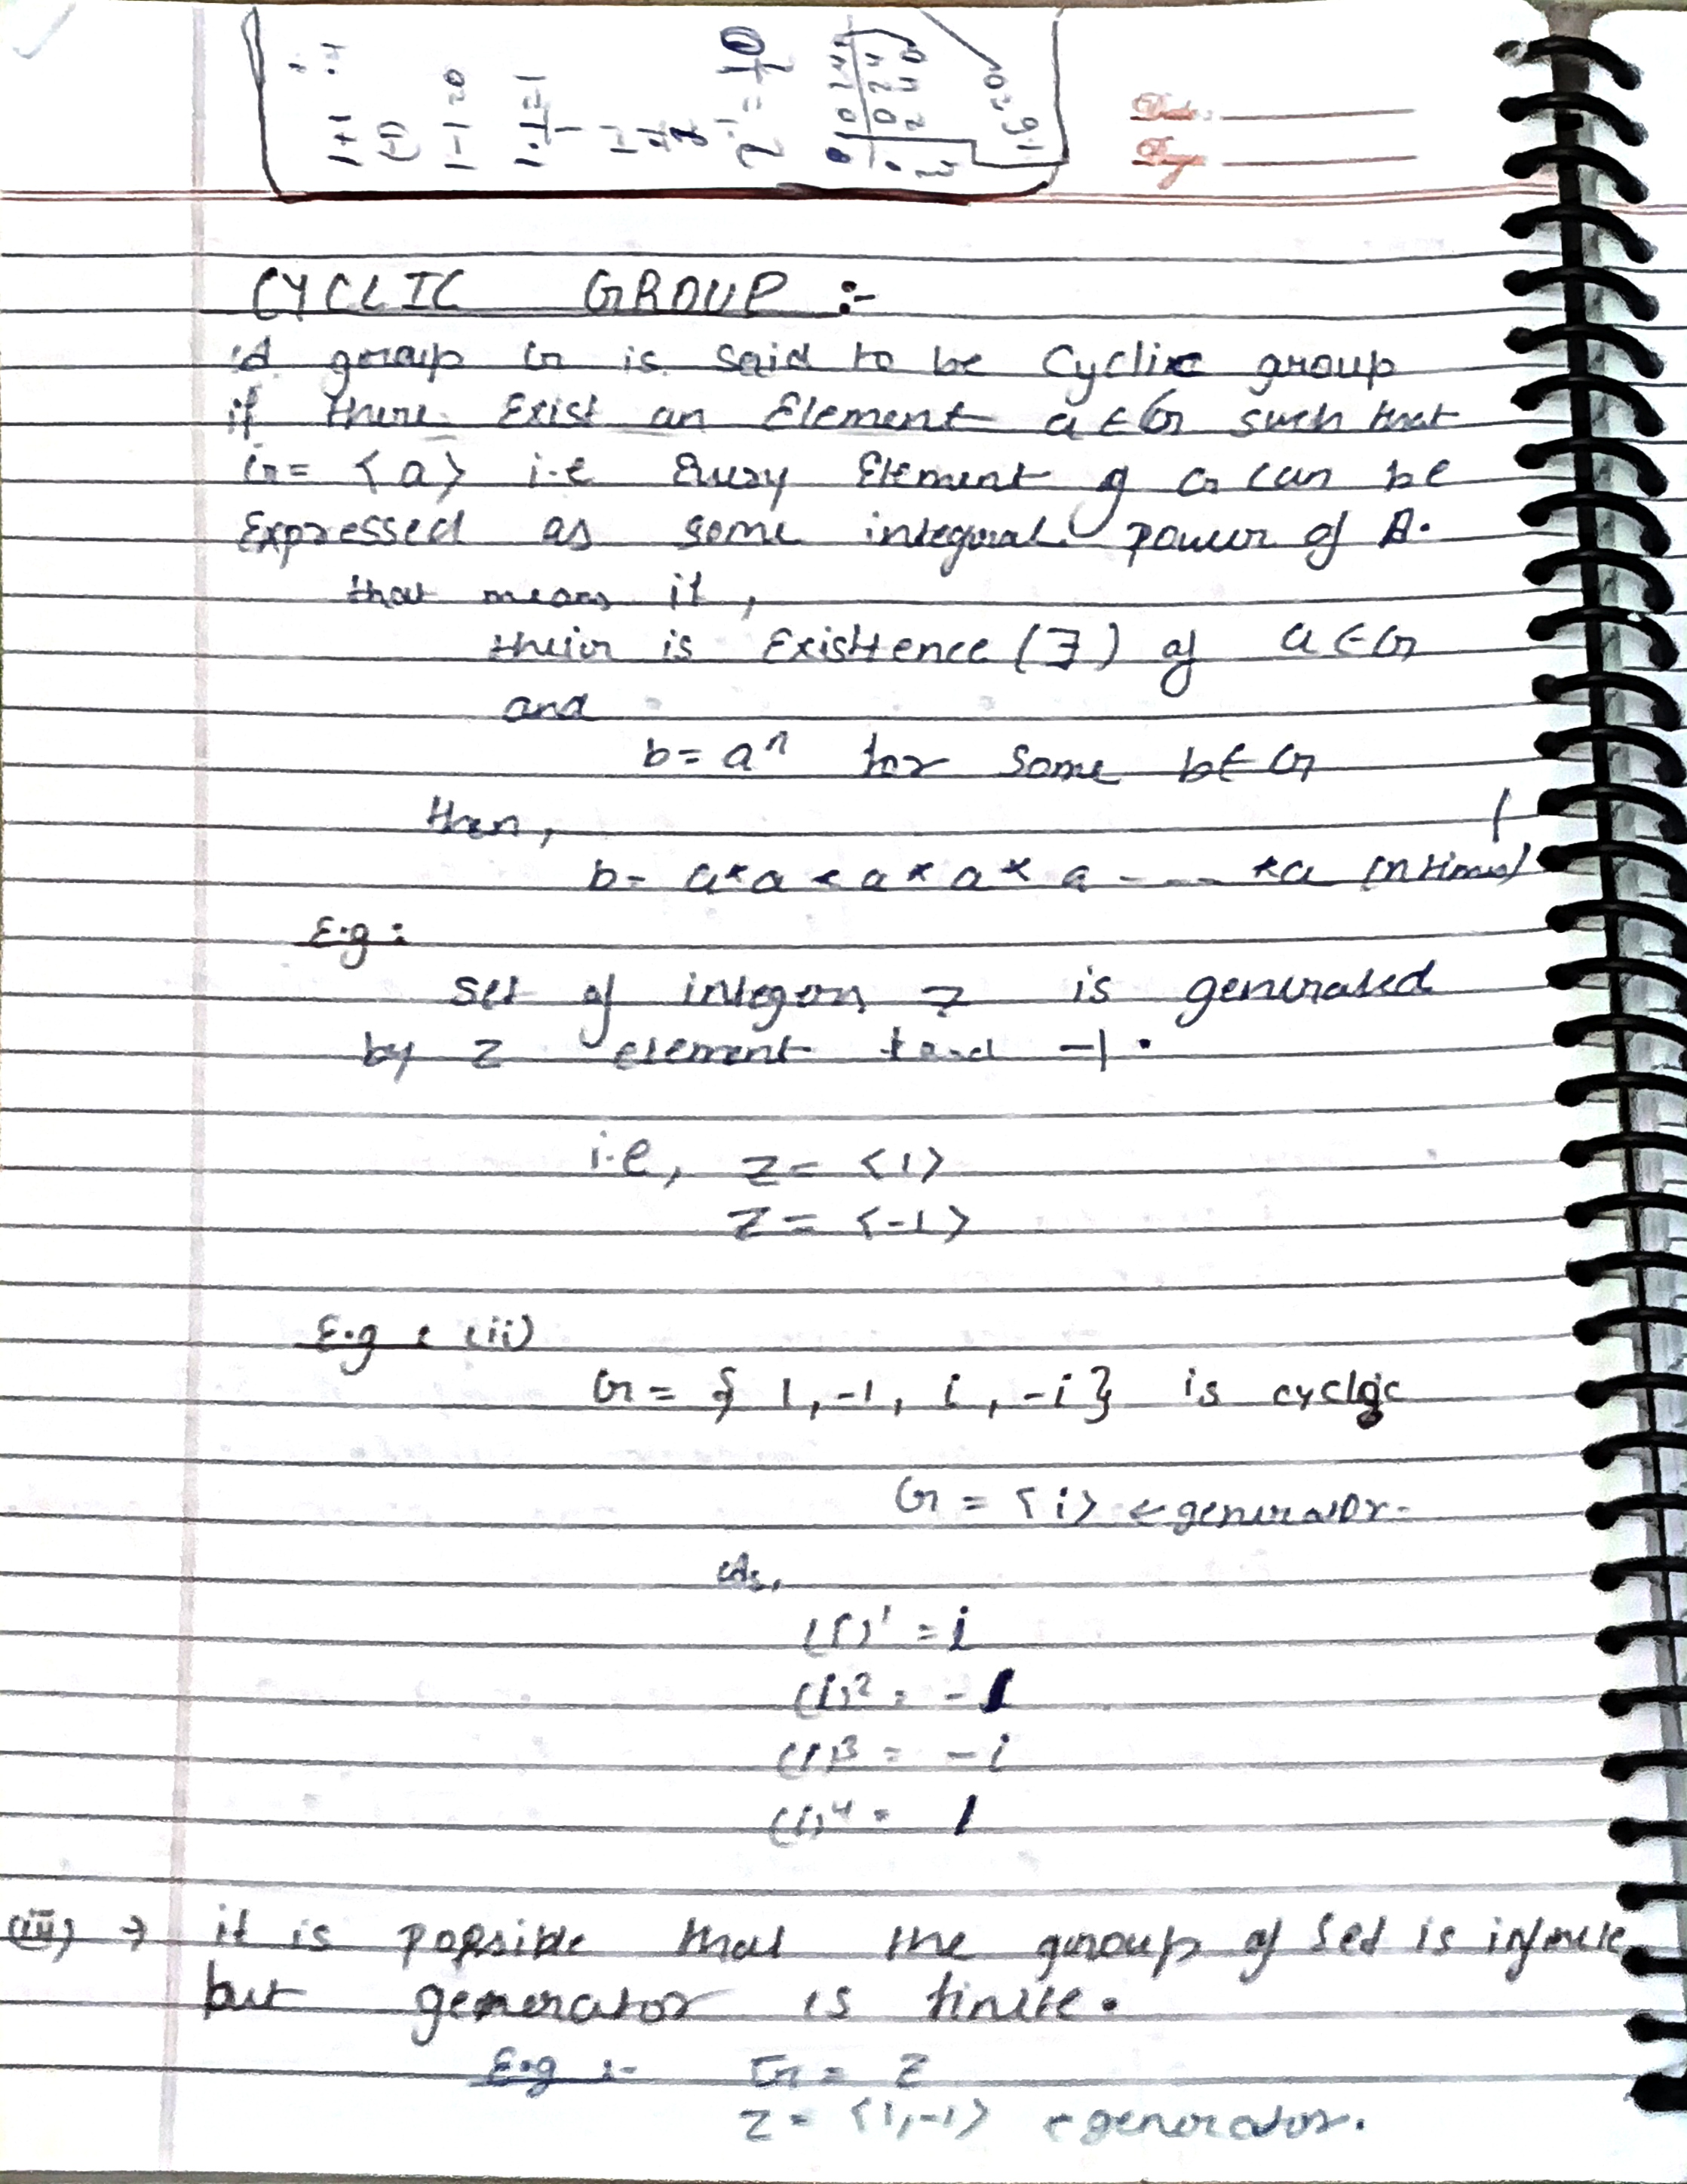 Date:
Page
CYCLIC GROUP :-
A group G is said to be Cyclic group
if there Exist an Element a ∈ G such that
G = <a> i.e Every Element of G can be
Expressed as some integral power of A.
that means if,
their is Existtence (∃) of a ∈ G
and
b = a^n for some b ∈ G
then,
b = a * a * a * a * a - - - * a (n times)
E.g :
set of integers Z is generated
by 2 element 1 and -1 .
i.e, Z = <1>
Z = <-1>
E.g : (ii)
G = { 1, -1, i, -i } is cyclic
G = <i> ← generator.
As,
(i)^1 = i
(i)^2 = -1
(i)^3 = -i
(i)^4 = 1
(iii) → it is possible that the group of Set is infinite
but generator is finite.
E.g :- G = Z
Z = <1, -1> ← generator.